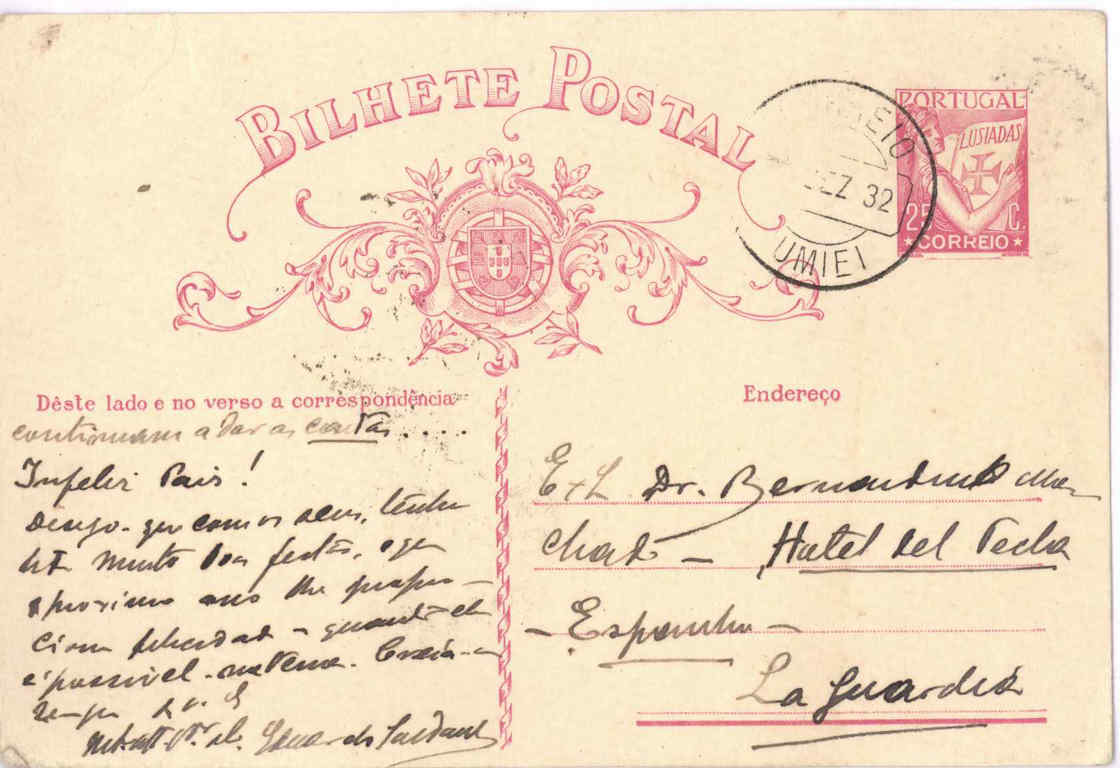 BILHETE POSTAL
PORTUGAL
LUSIADAS
25 C.
CORREIO
EIO
EZ 32
UMIEI
Dêste lado e no verso a correspondência
continuam a dar as contas....
Infeliz Pais!
Desejo que com os seus, tenha
muito boas festas, e que
o proximo ano lhe propor-
cione felicidade - quanto
é possivel na terra. Creia-
Eduardo
Endereço
Dr. Bernardino Ma
chado - Hotel del
- Espanha -
La Guardia